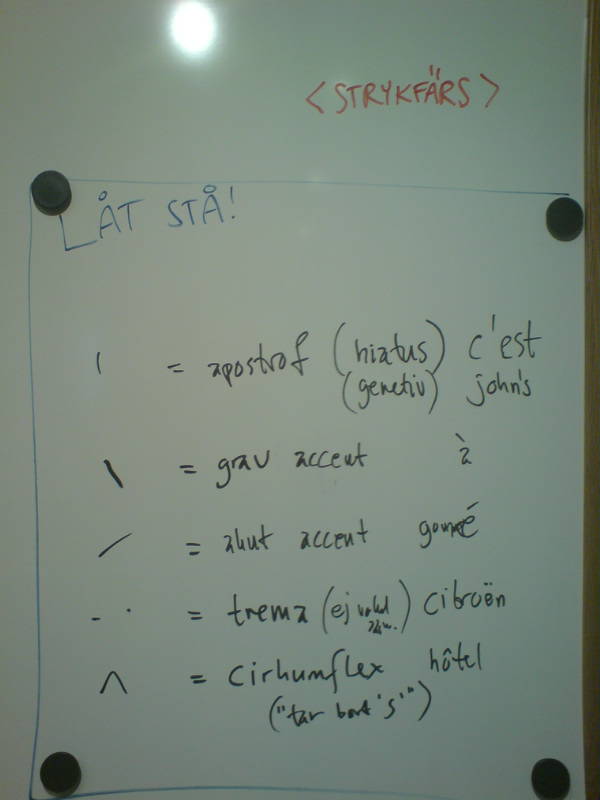 <STRYKFÄRS>
LÅT STÅ!
' = apostrof (hiatus) c'est
(genetiv) john's
\ = grav accent à
/ = akut accent
- · = trema (ej) citroën
^ = cirkumflex hôtel
("tar bort 's'")